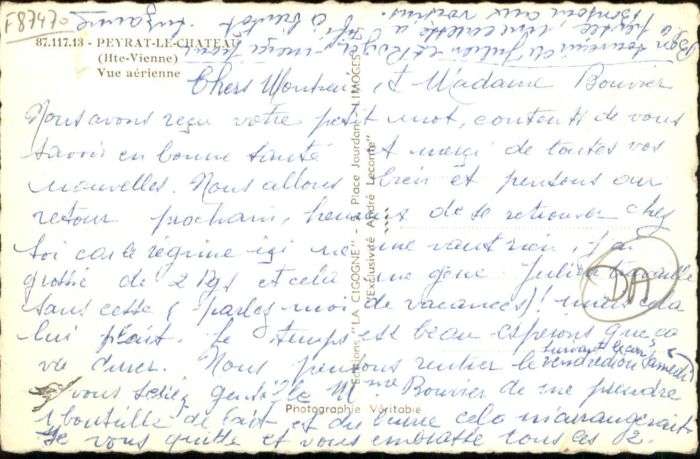 F87470
87.117.13 - PEYRAT-LE-CHATEAU
(Hte-Vienne)
Vue aérienne
Chers Monsieur et Madame Bouvier
Nous avons reçu votre petit mot, contents de vous
savoir en bonne santé et merci de toutes vos
nouvelles. Nous allons bien et pensons au
retour prochain, heureux de se retrouver chez
soi car le regime ici ne me vaut rien, j'ai
grossi de 2 kgs et cela me gène. Julien travaille
sans cesse (parlez moi de vacances)! mais cela
lui plait. Le temps est beau esperons que ça
va durer. Nous pensons rentrer le vendredi ou samedi
suivant le
si vous seriez gentille Mme Bouvier de me prendre
1 bouteille de lait et du beurre cela m'arrangerait
Je vous quitte et vous embrasse tous les 2.
Bon souvenir de Julien et Roger
à bientot. Suzanne
Bonjour aux voisins.
DA
Editions "LA CIGOGNE" - Place Jourdan - LIMOGES
"Exclusivité André Leconte"
Photographie Véritable